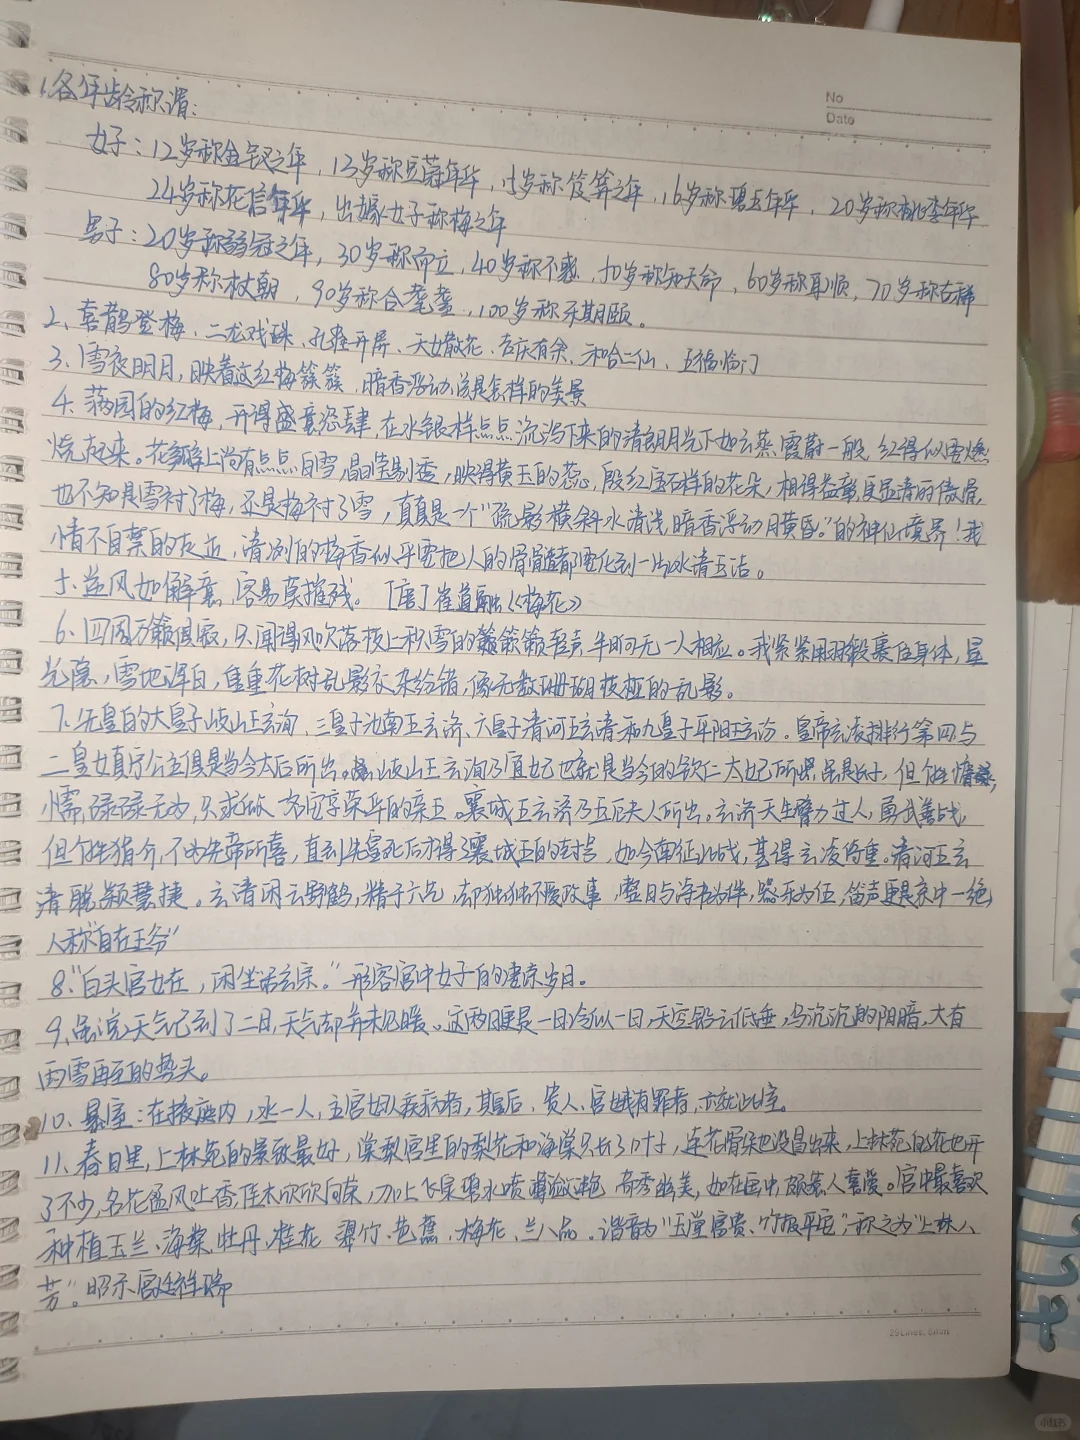 No
Date
1.各年龄称谓:
女子:12岁称金钗之年,13岁称豆蔻年华,15岁称笄之年,16岁称碧玉年华,20岁称桃李年华
24岁称花信年华,出嫁女子称梅之年
男子:20岁称弱冠之年,30岁称而立,40岁称不惑,50岁称知天命,60岁称耳顺,70岁称古稀
80岁称杖朝,90岁称耄耋,100岁称期颐。
2、喜鹊登梅、二龙戏珠、孔雀开屏、天女散花、吉庆有余、和合二仙、五福临门
3、雪夜明月,映着这红梅簇簇,暗香浮动,该是怎样的美景
4、满园的红梅,开得盛意恣肆,在水银样点点流泻下来的清朗月光下如云蒸霞蔚一般,红得似要燃
烧起来。花瓣上尚有点点白雪,晶莹剔透,映得黄玉的蕊,殷红宝石样的花朵,相得益彰,更显清的傲骨,
也不知是雪衬了梅,还是梅衬了雪,真真是一个"疏影横斜水清浅,暗香浮动月黄昏。"的神仙境界!我
情不自禁的走近,清冽的梅香似乎要把人的骨髓都要化到一片冰清玉洁。
5、逆风如解意,容易莫摧残。[唐]崔道融《梅花》
6、四周万籁俱寂,只闻得风吹落枝上积雪的簌簌轻声,半晌无一人相应。我紧紧用羽缎裹住身体,星
光隐,雪地浑白,重重花树乱影交杂纷错,像无数珊瑚枝桠的乱影。
7、先皇的大皇子岐山王玄洵、三皇子汝南王玄济、六皇子清河王玄清和九皇子平阳王玄汾。皇帝玄凌排行第四与
二皇女真宁公主俱是当今太后所出。岐山王玄洵乃宜妃也就是当今的钦仁太妃所出,虽是长子,但个性懦,
懦,碌碌无为,只求做一名安享荣华的亲王。襄城王玄济乃玉厄夫人所出。玄济天生膂力过人,勇武善战,
但个性狷介,不为先帝所喜,直到先皇死后才得了襄城王的封号,如今南征北战,甚得玄凌倚重。清河王玄
清聪颖慧捷。玄清闲云野鹤,精于六艺,却独独不爱政事,整日与诗书为伴,器乐为伍,笛声更是京中一绝,
人称"自在王爷"
8、"白头宫女在,闲坐话玄宗。"形容宫中女子的凄凉岁月。
9、虽说天气已到了二月,天气却并未见暖。这两日更是一日冷似一日,天空铅云低垂,乌沉沉的阴暗,大有
雨雪再至的势头。
10、暴室:在掖庭内,丞一人,主宫女疾病者,其皇后、贵人、宫娥有罪者,亦就此室。
11、春日里,上林苑的景致最好,棠梨宫里的梨花和海棠只长了叶子,连花骨朵也没冒出来,上林苑的花也开
了不少,名花盈风吐香,佳木欣欣向荣,加上飞泉碧水喷薄潋滟,奇秀幽美,如在画中,颇惹人喜爱。宫中最喜欢
种植玉兰、海棠、牡丹、桂花、翠竹、芭蕉、梅花、兰八品。谐音为"玉堂富贵、竹报平安",称之为"上林八
芳"。昭示宫廷祥瑞
小红书